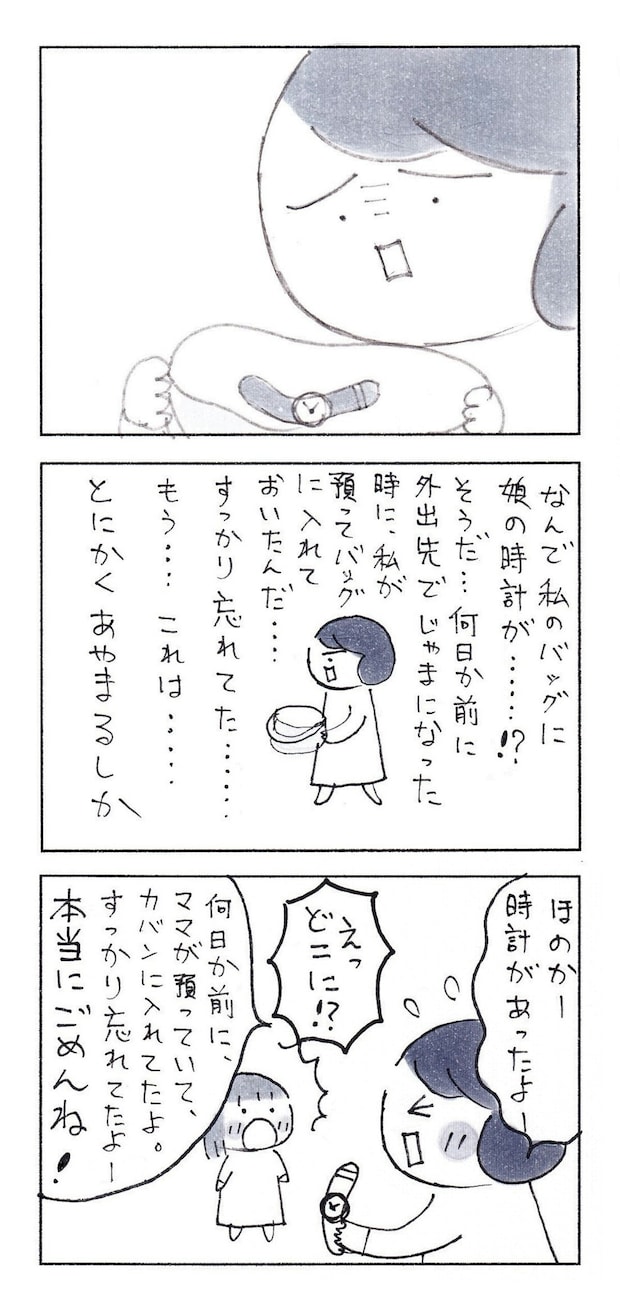 なんで私のバッグに
娘の時計が……!?
そうだ…何日か前に
外出先でじゃまになった
時に、私が
預ってバッグ
に入れて
おいたんだ…
すっかり忘れてた……
もう… これは……
とにかくあやまるしか
ほのかー
時計があったよー
えっ
どこに!?
何日か前に、
ママが預っていて、
カバンに入れてたよ。
すっかり忘れてたよー
本当にごめんね!